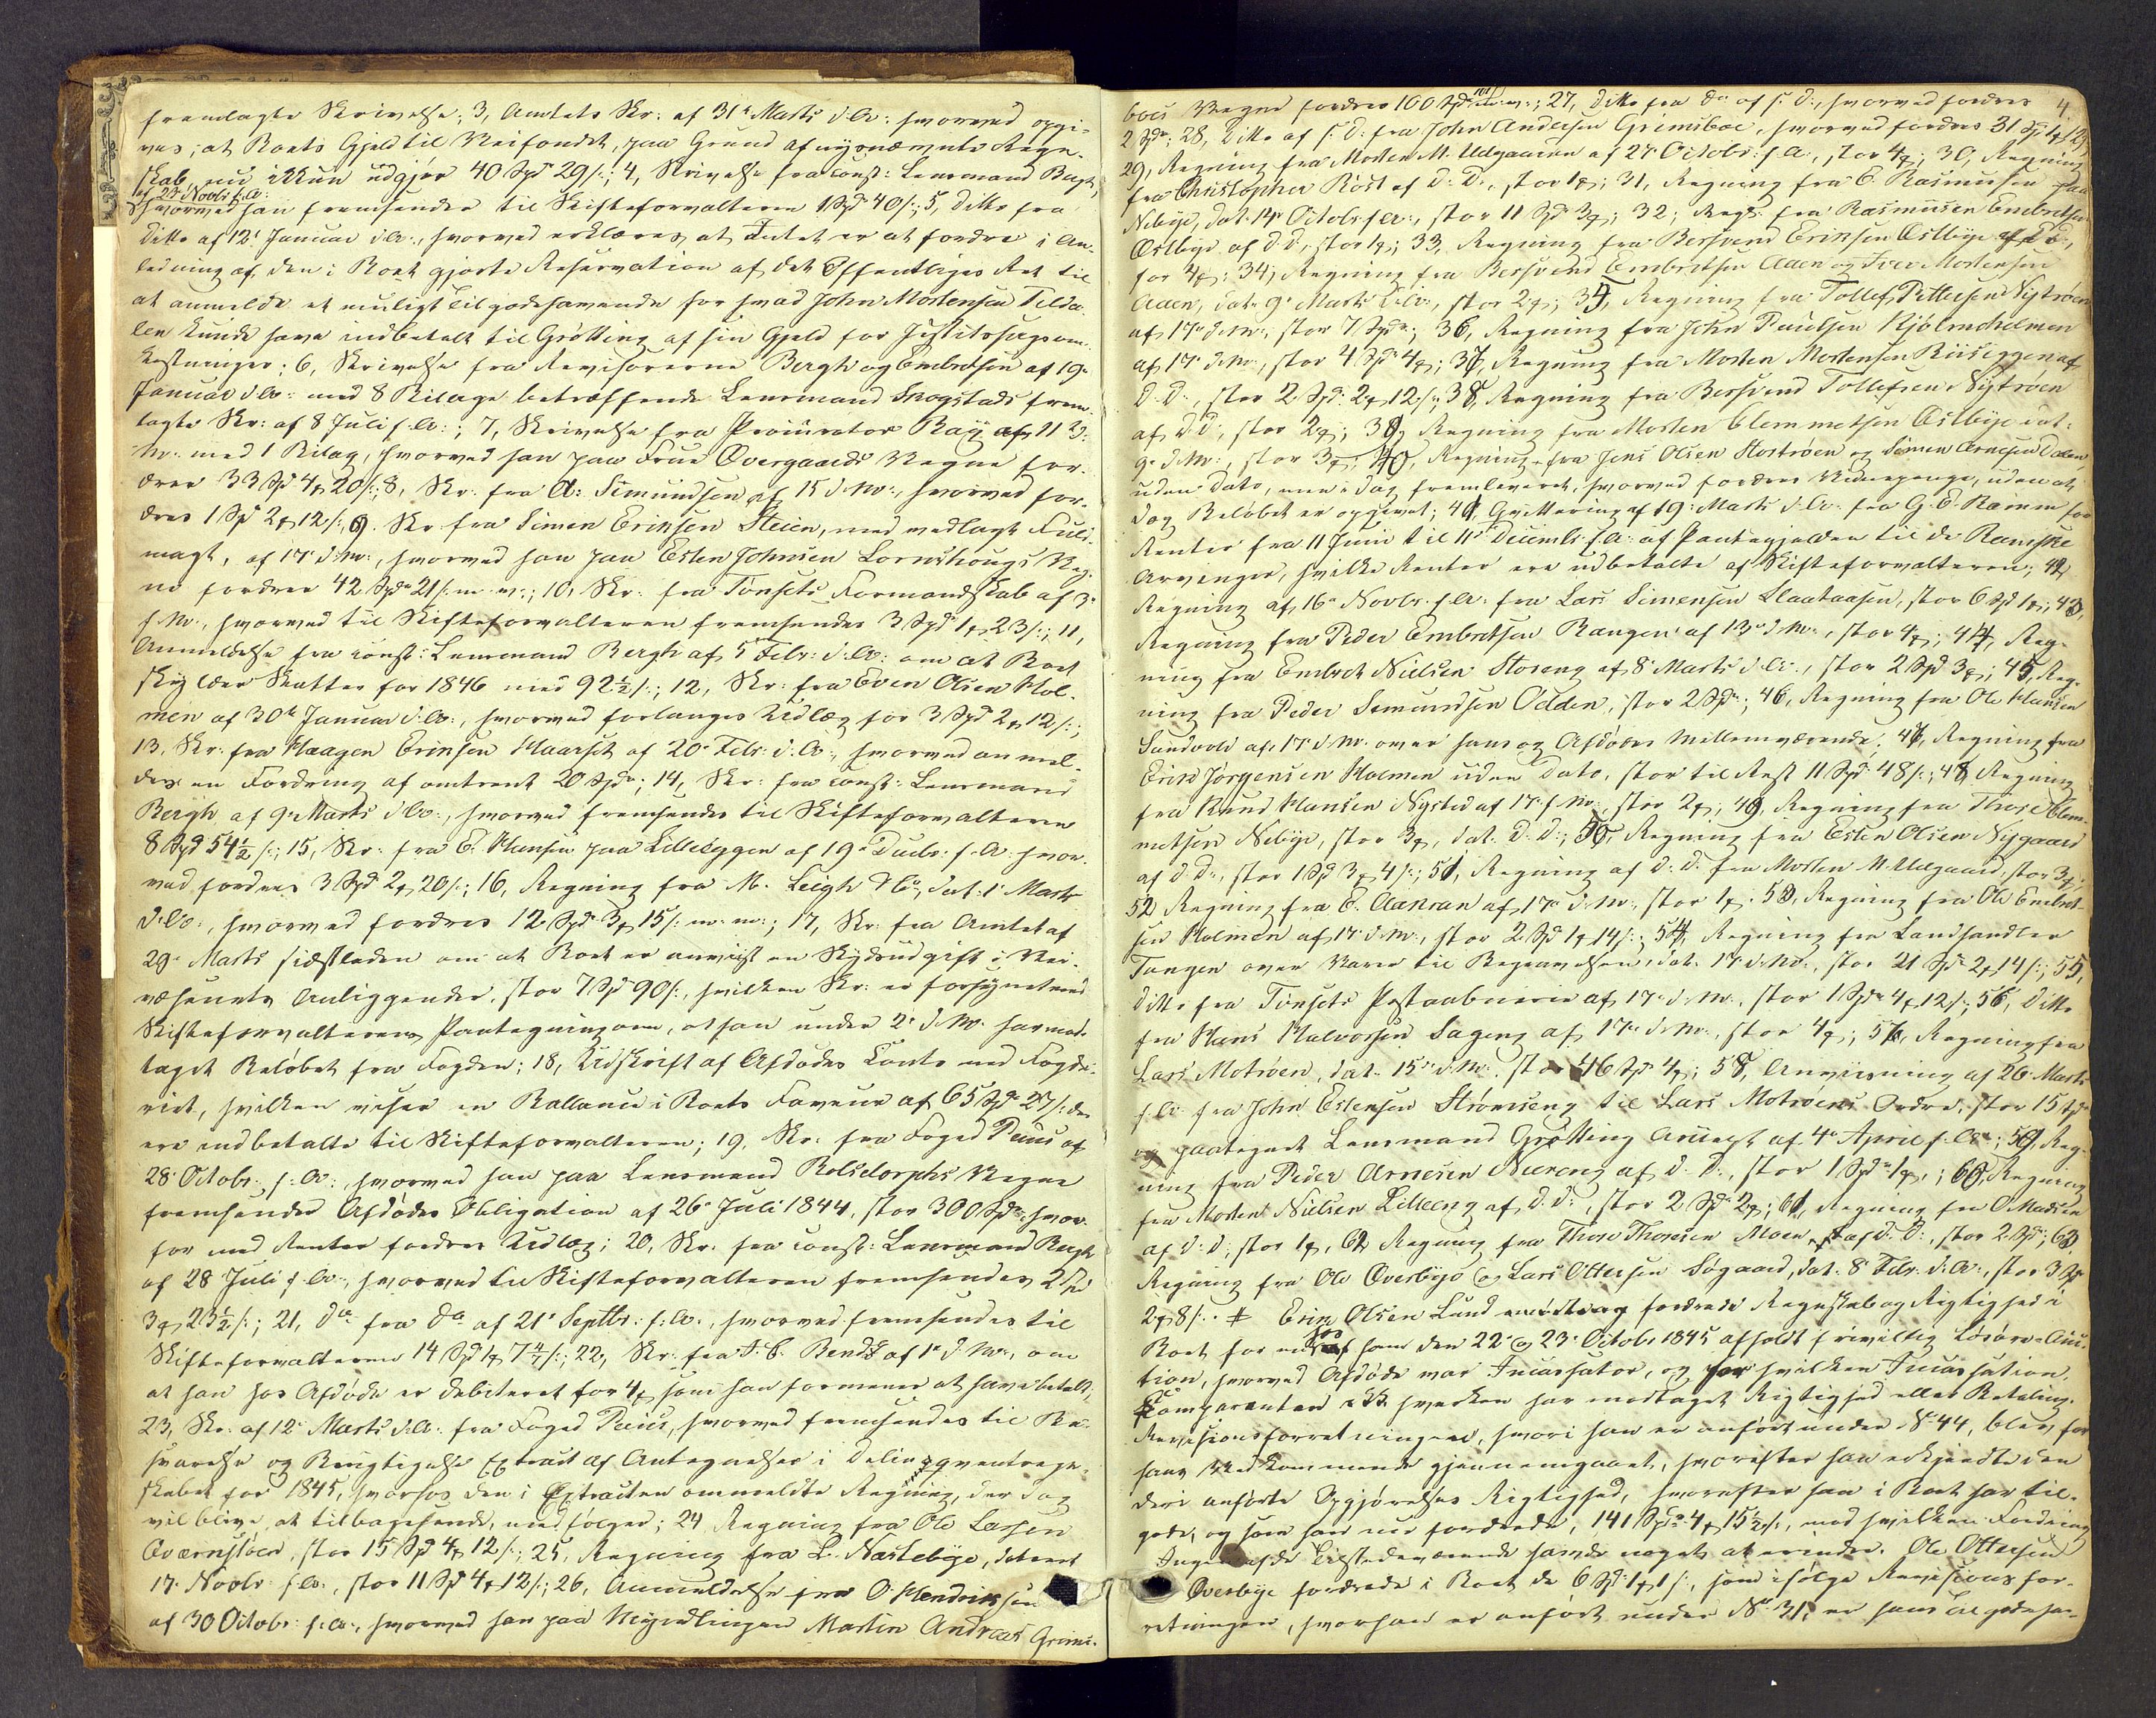 fremlagte Skrivelse; 3, Amtets Skr: af 31te Marts d:A: hvorved opgi-
ves, at Boets Gjeld til Veifondet, paa Grund af nysnævnte Regn-
skab nu ikkun udgjør 40 Spd 29 /:; 4, Skrivelse fra const: Lensmand Bergh,
af 23 Novbr f.A:
hvorved han fremsender til Skifteforvalteren 1 Spd 40 /:; 5, ditto fra
Ditto af 12te Januar d:A:, hvorved erklæres, at Intet er at fordre i An-
ledning af den i Boet gjorte Reservation af det Offentliges Ret til
at anmelde et muligt Tilgodehavende for hvad John Mortensen Telda-
len kunde have indbetalt til Grøtting af sin Gjeld for Justitssagsom-
kostninger; 6, Skrivelse fra Revisorerne Bergh og Embretsen af 19de
Januar d:A: med 8 Bilage betræffende Lensmand Skogstads frem-
lagte Skr: af 8 Juli f.A:; 7, Skrivelse fra Procurator Bay af 11 d:
M: med 1 Bilag, hvorved han paa Frue Overgaards Vegne for-
drer 33 Spd 4 20 /:; 8, Skr: fra A: Simundsen af 15 d:M:, hvorved for-
dres 1 Spd 2 12 /:; 9. Skr fra Simen Eriksen Steien, med vedlagt Fuld-
magt, af 17 d:M:, hvorved han paa Esten Johnsen Vegne
fordrer 42 Spd 21 /: m: m:; 10, Skr: fra Tønsets Formandskab af 3de
f.M:, hvorved til Skifteforvalteren fremsendes 3 Spd 1 23 /:; 11,
Anmeldelse fra const: Lensmand Bergh af 5 Febr: d:A: om at Boet
skylder Skatter for 1846 med 92½ /:; 12, Skr: fra Even Olsen Hol-
men af 30te Januar d:A:, hvorved forlanges Udlæg for 3 Spd 2 12 /:;
13, Skr: fra Haagen Eriksen Haarset af 20 Febr: d:A:, hvorved anmel-
des en Fordring af omtrent 20 Spd; 14, Skr: fra const: Lensmand
Bergh af 9 Marts d:A:, hvorved fremsendes til Skifteforvalteren
8 Spd 54½ /:; 15, Skr: fra E. Hansen paa Lilleeggen af 19de Decbr: f:A: hvor-
ved fordres 3 Spd 2 20 /:; 16, Regning fra M. Leigh & Co, dat: 1 Marts
d:A:, hvorved fordres 12 Spd 3 15 /: m: m:; 17, Skr: fra Amtet af
29 Marts sidstleden om at Boet er anviist en Skydsudgift i Vei-
væsenets Anliggender, stor 7 Spd 90 /:, hvilken Skr: er forsynet med
Skifteforvalterens Paategning om, at han under 2 d:M: har mod-
taget Beløbet fra Fogden; 18, Udskrift af Afdødes Conto med Fogde-
riet, hvilken viser en Ballance i Boets Faveur af 65 Spd 27 /: der
ere indbetalte til Skifteforvalteren; 19, Skr: fra Foged Peuus af
28 Octobr: f:A:, hvorved han paa Lensmand Rolsdorphs Vegne
fremsender Afdødes Obligation af 26 Juli 1844, stor 300 Spd, hvor-
for med Renter fordres Udlæg; 20, Skr: fra const: Lensmand Bergh
af 28 Juli f.A:, hvorved til Skifteforvalteren fremsendes 2 Spd
3 23½ /:; 21, do fra do af 21 Septbr: f:A:, hvorved fremsendes til
Skifteforvalteren 14 Spd 1 7 /:; 22, Skr: fra Bendz af 1 d:M:, om
at han hos Afdøde er debiteret for 4 som han formener at have betalt;
23, Skr: af 12 Marts d:A: fra Foged, hvorved fremsendes til Be-
svarelse og Berigtigelse Extract af Antegnelser i Delinqventregn-
skabet for 1845, hvorhos den i Extracten ommeldte Regning, der dog
vil blive at tilbagesende, medfølger; 24 Regning fra Ole Larsen
Qværnstøen, stor 15 Spd 4 12 /:; 25, Regning fra L. Nastebye, dateret
17 Novbr f.A:, stor 11 Spd 4 12 /:; 26, Anmeldelse fra O. Hendriksen
af 30 Octobr: f:A:, hvorved han paa Myndlingen Martin Andreas Grims-
4.
boes Vegne fordrer 100 Spd m: m:; 27, Ditto fra do af s: D:, hvorved fordres
2 Spd; 28, Ditto af s: D: fra John Andersen Grimsboe, hvorved fordres 31 Spd
29, Regning fra Morten M. Udgaarden af 27 Octobr: f.A:, stor 4; 30, Regning
fra Christopher Røst af D: D:, stor 1; 31, Regning fra E. Rasmusen paa
Nibye, dat: 14 Octobr f.A:, stor 11 Spd 3; 32, Regn: fra Rasmus Embretsen
Østbye af d: d:, stor 1; 33, Regning fra Bersvend Eriksen Østbye af d:d:,
for 4; 34, Regning fra Bersvend Embretsen Aaen og Iver Mortensen
Aaen, dat: 9 Marts d:A:, stor 2; 35, Regning fra Tollef Pettersen Nystrøen
af 17 d:M:, stor 7 Spd; 36, Regning fra John Paulsen Kjølmoehlmen
af 17 d:M:, stor 4 Spd 4; 37, Regning fra Morten Mortensen Riiseggen af
D: D:, stor 2 Spd 2 12 /:; 38, Regning fra Bersvend Tollefsen Nystrøen
af d:d:, stor 2; 39, Regning fra Morten Clemmetsen Østbye dat:
9 d:M:, stor 3; 40, Regning fra Jens Olsen Hostrøen og Simen Arnesen Dalen,
uden Dato, men i Dag fremleveret, hvorved fordres Vidnepenge, uden at
dog Beløbet er opgivet; 41 Qvittering af 19 Marts d:A: fra G. E. Ramm for
Renter fra 11 Juni til 11 Decembr f.A: af Pantegjelden til de Ramske
Arvinger, hvilke Renter ere udbetalte af Skifteforvalteren; 42
Regning af 16 Novbr: f.A: fra Lars Simensen, stor 6 Spd 1; 43,
Regning fra Peder Embretsen Rangen af 13 d:M:, stor 4; 44, Reg-
ning fra Embret Nielsen Storeng af 8 Marts d:A:, stor 2 Spd 3; 45, Reg-
ning fra Peder Semundsen Odden, stor 2 Spd; 46, Regning fra Ole Hansen
Sandvold af 17 d:M: over hans og Afdødes Mellemværende; 47, Regning fra
Erik Jørgensen Holmen uden Dato, stor til Rest 11 Spd 48 /:; 48 Regning
fra Knud Hansen Nysted af 17 f.M:, stor 2; 49, Regning fra Thore Clem-
metsen Nibye, stor 3, dat: D: D:; 50, Regning fra Esten Olsen Nygaard
af d: D:, stor 1 Spd 3 4 /:; 51, Regning af d: D: fra Morten M. Udgaard, stor 3;
52 Regning fra E. Aakran af 17 d:M:, stor 1; 53, Regning fra Ole Embret-
sen Holmen af 17 d:M:, stor 2 Spd 1 14 /:; 54, Regning fra Landhandler
Tangen over Varer til Begravelsen, dat: 17 d:M:, stor 21 Spd 2 14 /:; 55,
Ditto fra Tønsets Postaabnerie af 17 d:M:, stor 1 Spd 4 12 /:; 56, Ditto
fra Hans Halvorsen Sageng af 17 d:M:, stor 4; 57, Regning fra
Lars Motrøen, dat: 15 d:M:, stor 46 Spd 4; 58, Anviisning af 26 Marts
f.A: fra John Estensen Strømseng til Lars Motrøens Ordre, stor 15 Spd
og paategnet Lensmand Grøtting Accept af 4 April f.A:; 59, Reg-
ning fra Peder Arnesen Nureng af d: D:, stor 1 Spd 1; 60, Regning
fra Morten Nielsen Lilleeng af d: D:, stor 2 Spd 2; 61, Regning fra O Madsen
af d: D:, stor 1; 62 Regning fra Thore Thoresen Moen af d: D:, stor 2 Spd; 63
Regning fra Ole Overbye og Lars Ottersen Søgaard, dat: 8 Febr: d:A:, stor 3 Spd
2 8 /:. Erik Olsen Lund fordrede Regnskab og Rigtighed i
Boet for en hos ham den 22 og 23 Octobr 1845 afholdt frivillig Løsøre-Auc-
tion, hvorved Afdøde var Incassator, og for hvilken Incassation
Comparenten hverken har modtaget Rigtighed eller Betaling.
Revisionsforretningen, hvori han er anført under No 44, blev for
hans Vedkommende gjennemgaaet, hvorefter han erkjendte den
deri anførte Opgjørelses Rigtighed, hvorefter han i Boet har til-
gode, og som han nu fordrede, 141 Spd 4 15½ /:, mod hvilken Fordring
Ingen af de Tilstedeværende havde noget at erindre. Ole Ottersen
Overbye fordrede i Boet de 6 Spd 1 1 /:, som ifølge Revisionsfor-
retningen, hvor han er anført under No 31, er hans Tilgodeha-